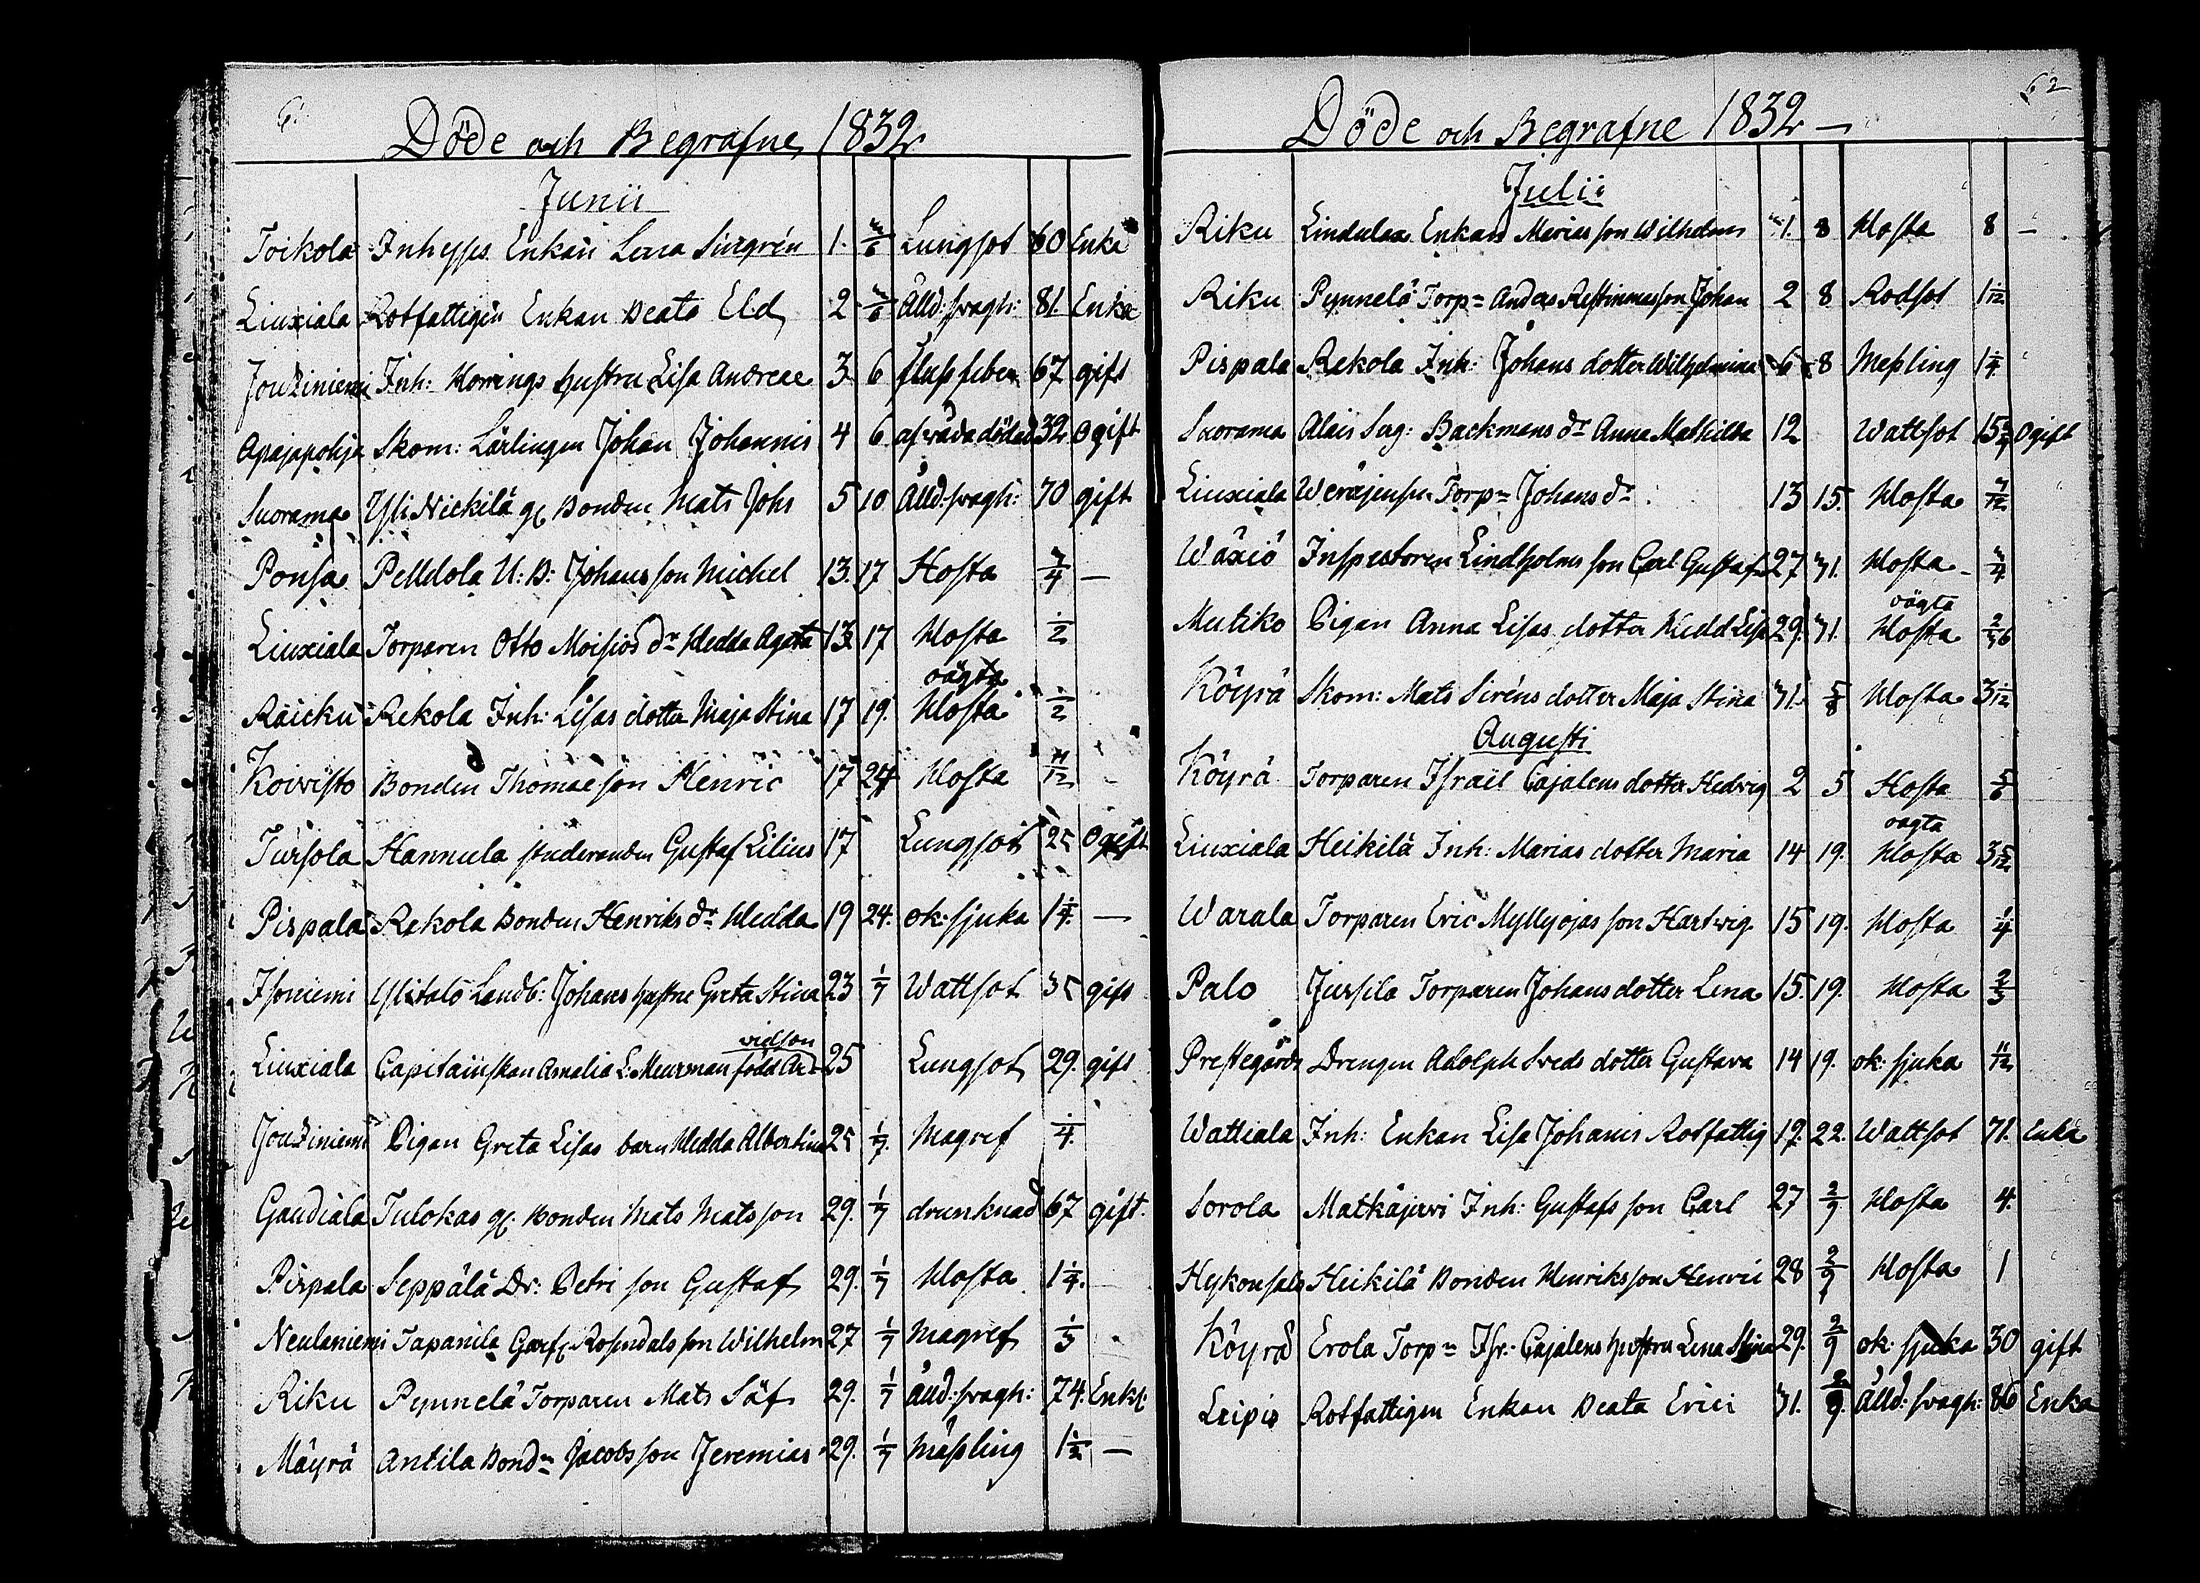 Döde och Begrafne 1832
Junii
Toikola Inhyses Enkan Lena Sirgrén 1. 3/6 Lungsot 60 Enka
Liuxiala Rotfattigin Enkan Beata Eld 2 3/6 Ålld: svagh: 81. Enka
Inh: Hornings hustru Lisa Andreae 3 6 flussfeber 67 gift
Apajapohja Skom: Lärlingen Johan Johannis 4 6 af våda dödad 32 Ogift
Suorama Yli Nickilä gl Bonden Mats Johs 5 10 Ålld: svagh: 70 gift
Ponsa Pelldola U: B: Johans son Michel 13. 17 Hosta 3/4 —
Liuxiala Torparen Otto Moisios dr Hedda Agata 13 17 Hosta 1/2
Räicku Rekola Inh: Lisas dotter Maja Stina 17 19. oägta Hosta 1/2
Koivisto Bonden Thomae son Henric 17 24 Hosta 11/12
Tursola Hannula studeranden Gustaf Lilius 17 Lungsot 25 Ogift
Pispala Rekola Bonden Henriks dr Hedda 19 24. ok: sjuka 1 1/4. —
Isoniemi Ylitalo Landb: Johans hustru Greta Stina 23 1/7 Wattsot 35 gift
Liuxiala Capitainskan Amalia L: Meurman född Arvidson 25 Lungsot 29. gift
Pigan Greta Lisas barn Hedda Albertina 25 1/7. Magref 1/4.
Gaudiala Tulokas gl. Bonden Mats Matsson 29. 1/7 drunknad 67 gift.
Pispala Seppälä Dr: Petri son Gustaf 29. 1/7 Hosta 1 1/4.
Neulaniemi Tapanila Garf: Rosendals son Wilhelm 27 1/7 Magref 1/3
Riku Pynnelä Torparen Mats Säf 29. 1/7 Ålld: svagh: 74. Enkl:
Mäyrä Antila Bondn Jacobs son Jeremias 29. 1/7 Mässling 1 1/2 —
62
Döde och Begrafne 1832 —
Julii
Riku Lindulax Enkans Marias son Wilhelm 1. 8 Hosta 8 —
Riku Pynnelä Torpn Anders son Johan 2 8 Rodsot 1 1/12
Pispala Rekola Inh: Johans dotter Wilhelmina 6 8 Messling 1 1/4
Suorama Alais Serg: Backmans dr Anna Mathilda 12 Wattsot 15 Ogift
Liuxiala Torpn Johans dr 13 15. Hosta
Wäxiö Inspectoren Lindholms son Carl Gustaf 27 31. Hosta 3/4
Mutiko Pigan Anna Lisas dotter Hedd Lisa 29. 31. oägta Hosta
Köyrä Skom: Mats Siréns dotter Maja Stina 31. 5/8 Hosta 3 1/12
Augusti
Köyrä Torparen Israël Cajalens dotter Hedvig 2 5 Hosta 5/6
Liuxiala Heikilä Inh: Marias dotter Maria 14 19. oägta Hosta 3 5/12
Warala Torparen Eric Myllyojas son Hartvig 15 19. Hosta 1/4
Palo Jussila Torparen Johans dotter Lena 15. 19. Hosta 2/3
Prestegårds Drengen Adolph Sveds dotter Gustava 14 19. ok: sjuka 11/12
Wattiala Inh: Enkan Lisa Johanis Rotfattig 19. 22. Wattsot 71. Enka
Sorola Matkajervi Inh: Gustafs son Carl 27 2/9 Hosta 4.
Heikilä Bonden Henriks son Henric 28 2/9 Hosta 1
Köyrä Erola Torpn Isr: Cajalens hustru Lena Stina 29. 2/9 ok: sjuka 30 gift
Leipis Rotfattigen Enkan Beata Erici 31. 2/9. Ålld: svagh: 86 Enka